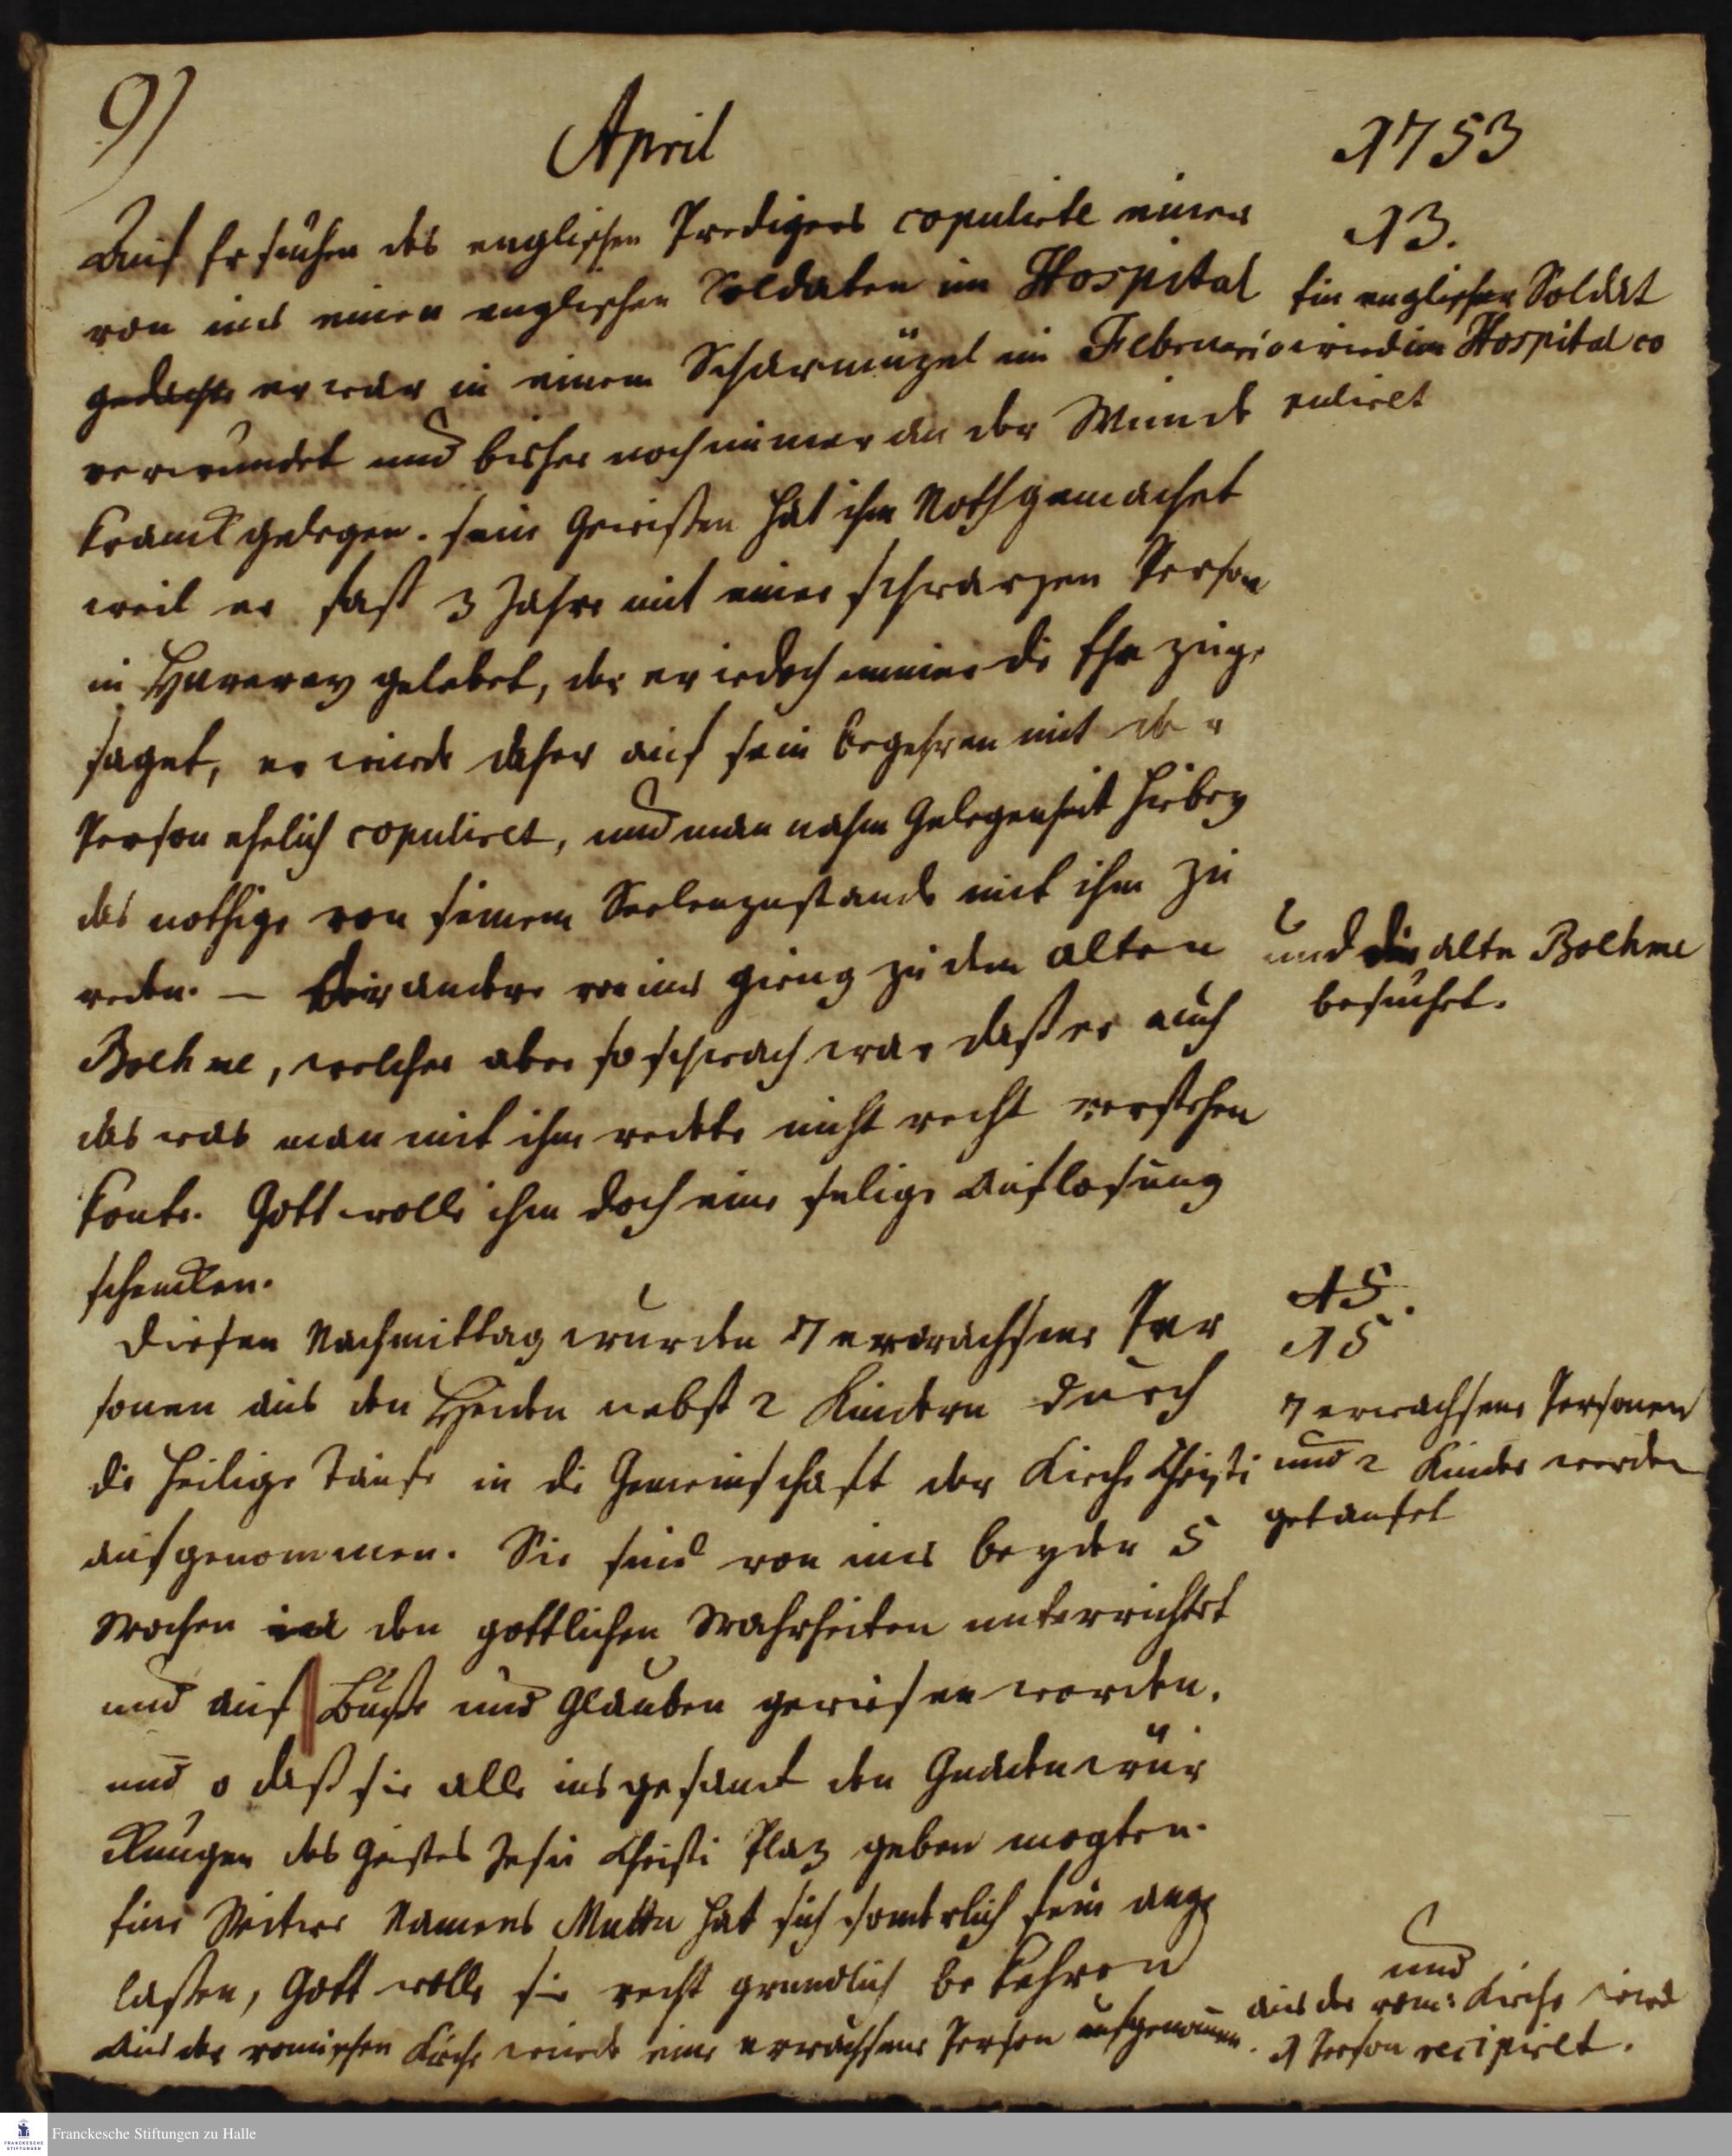 9)
April
1753
Auf Ersuchen des englischen Predigers copulirte einer
von uns einen englischen Soldaten im Hospital
gedachte er war in einem Scharmützel im Februario
verwundet und bisher noch immer an der Wunde
kranck gelegen. sein Gewissen hat ihm Noth gemachet
weil er fast 3 Jahre mit einer schwarzen Person
in Hurerey gelebet, der er iedoch immer die Ehe zuge
saget, er wurde daher auf sein begehren mit der
Person ehelich copuliret, und man nahm Gelegenheit hiebey
das nothige von seinem Seelenzustande mit ihm zu
reden. — Der andere von uns gieng zu dem alten
Boehme, welcher aber so schwach war daß er auch
das was man mit ihm redete nicht recht verstehen
konte. Gott wolle ihm doch eine selige Auflosung
schencken.
Diesen Nachmittag wurden 7 erwachsene Per
sonen aus den Heiden nebst 2 Kindern durch
die heilige Taufe in die Gemeinschaft der Kirche Christi
aufgenommen. Sie sind von uns beyden 5
Wochen in den gottlichen Wahrheiten unterrichtet
und auf Buße und Glauben gewiesen worden.
und o daß sie alle ins gesamt den Gnadenwür
ckungen des Geistes Jesu Christi Plaz geben mogten.
Eine Witwe Namens Muttu hat sich sonderlich fein ange
lassen, Gott wolle sie recht grundlich bekehren
Aus der romischen Kirche wurde eine erwachsene Person aufgenommen.
13.
Ein englischer Soldat
wird im Hospital co
puliret
und der alte Boehme
besuchet.
15.
15
7 erwachsene Personen
und 2 Kinder werden
getaufet
und
aus der rom: Kirche wird
1 Person recipirt.
Franckesche Stiftungen zu Halle
FRANCKESCHE
STIFTUNGEN